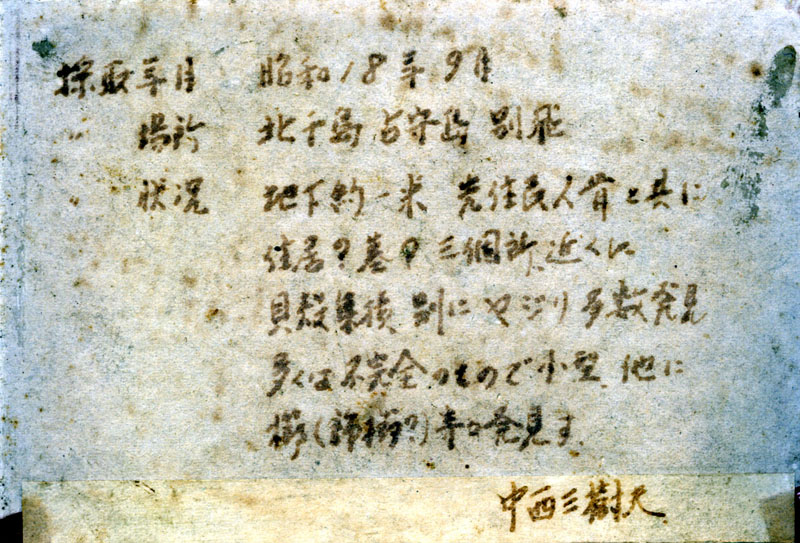 採取年月 昭和18年9月
場所 北千島 占守島 別飛
状況 地下約一米 先住民人骨と共に
住居?基? 三個所、近くに
貝殻集積 別にヤジリ多数発見
多くは不完全のもので小型、他に
櫛()等を発見す
中西三樹夫